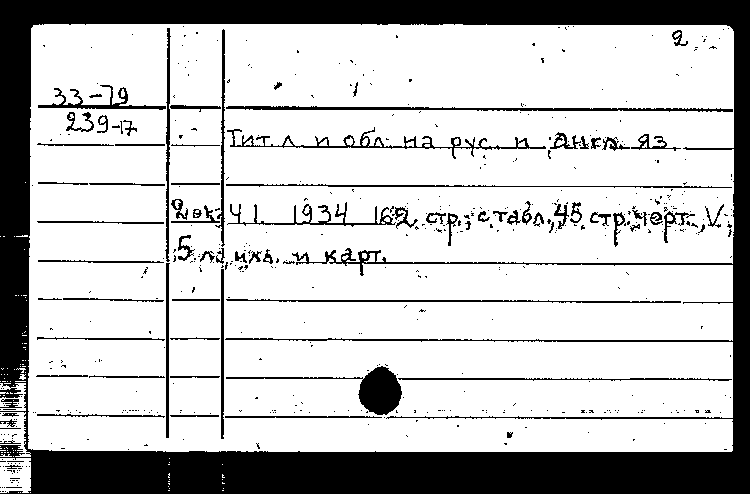 2
33-79
239-17
Тит. л. и обл. на рус. и англ. яз.
2 экз. Ч.1. 1934. 162 стр.; с табл., 45 стр. черт., V,
5 л. илл. и карт.